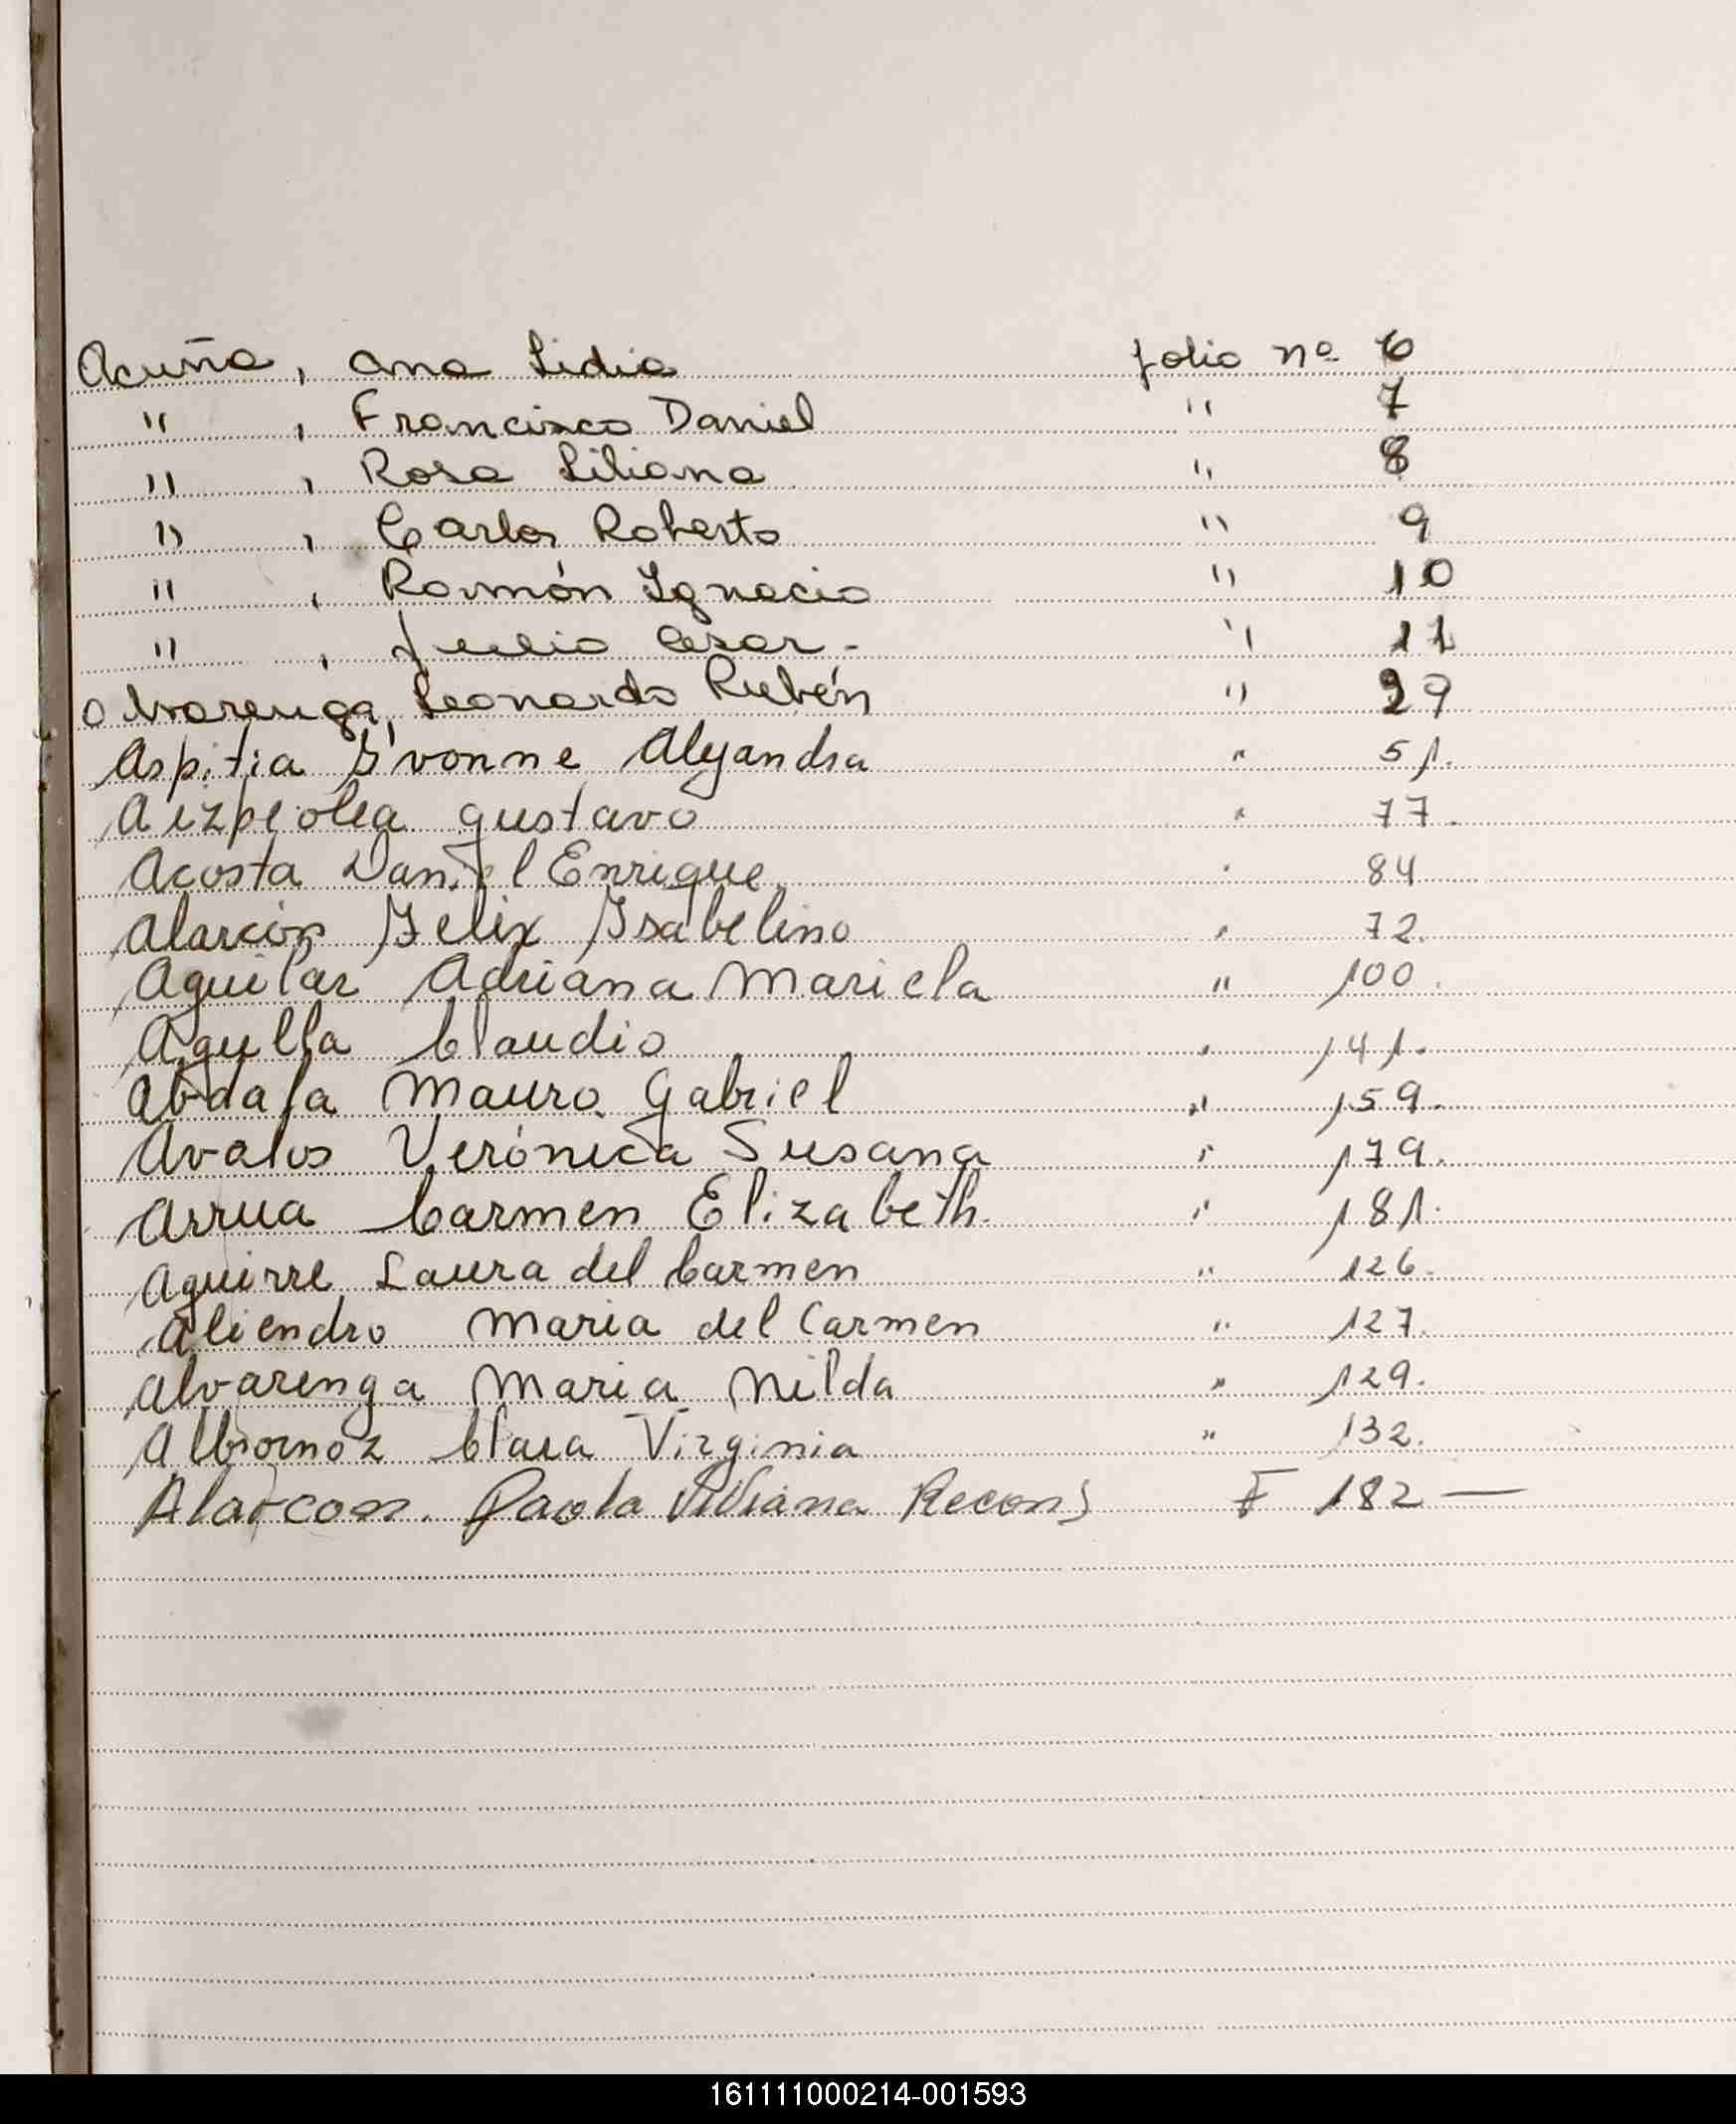 Acuña, Ana Lidia folio nº 6
" , Francisco Daniel " 7
" , Rosa Liliana " 8
" , Carlos Roberto " 9
" , Ramón Ignacio " 10
" , Julio Cesar - " 11
Alvarenga, Leonardo Rubén " 29
Aspitia Ivonne Alejandra " 51.
Aizpeolea Gustavo " 77.
Acosta Daniel Enrique " 84
Alarcón Felix Isabelino " 72.
Aguilar Adriana Mariela " 100.
Agulla Claudio " 141.
Abdala Mauro Gabriel " 159.
Avalos Verónica Susana " 179.
Arrua Carmen Elizabeth. " 181.
Aguirre Laura del Carmen " 126.
Aliendro Maria del Carmen " 127.
Alvarenga Maria Nilda " 129.
Albornoz Clara Virginia " 132.
Alarcon. Paola Viviana Recon) F 182 —
161111000214-001593